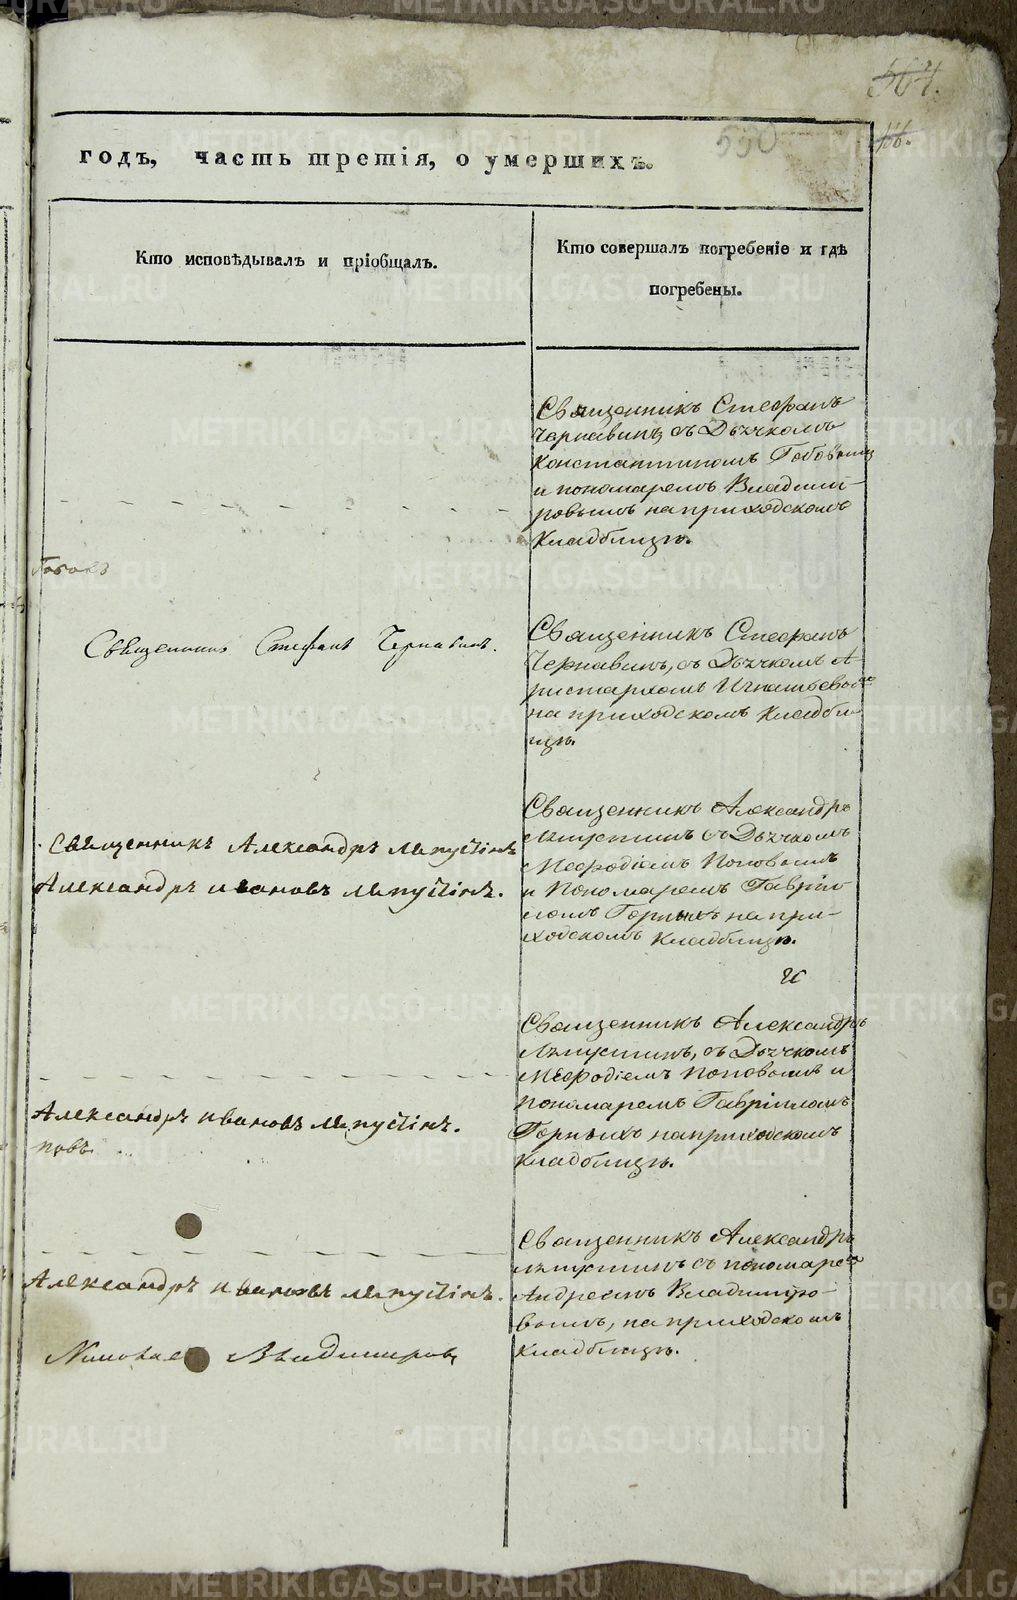 564.
550
годъ, часть третія, о умершихъ.
Кто исповѣдывалъ и пріобщалъ.
Кто совершалъ погребеніе и гдѣ
погребены.
Священникъ Стефанъ
Чернавинъ съ Дьячкомъ
Константиномъ
и пономаремъ Владими-
ровымъ на приходскомъ
Кладбищѣ.
Священникъ Стефанъ Чернавинъ.
Священникъ Стефанъ
Чернавинъ, съ Дьячкомъ А-
ристархомъ Игнатьевымъ
на приходскомъ кладби-
щѣ.
Священникъ Александръ Лепустинъ
Александръ Ивановъ Лепустинъ.
Священникъ Александръ
Лепустинъ съ Дьячкомъ
Мефодіемъ Поповымъ
и Пономаремъ Гаврiи-
ломъ Горныхъ на при-
ходскомъ кладбищѣ.
и
Священникъ Александръ
Лепустинъ, съ Дьячкомъ
Мефодіемъ Поповымъ и
пономаремъ Гавріиломъ
Горныхъ на приходскомъ
кладбищѣ.
Александръ Ивановъ Лепустинъ.
повъ.
Священникъ Александръ
Лепустинъ съ пономаремъ
Андреемъ Владиміро-
вымъ, на приходскомъ
кладбищѣ.
Александръ Ивановъ Лепустинъ.
Николае Владимировъ
METRIKI.GASO-URAL.RU